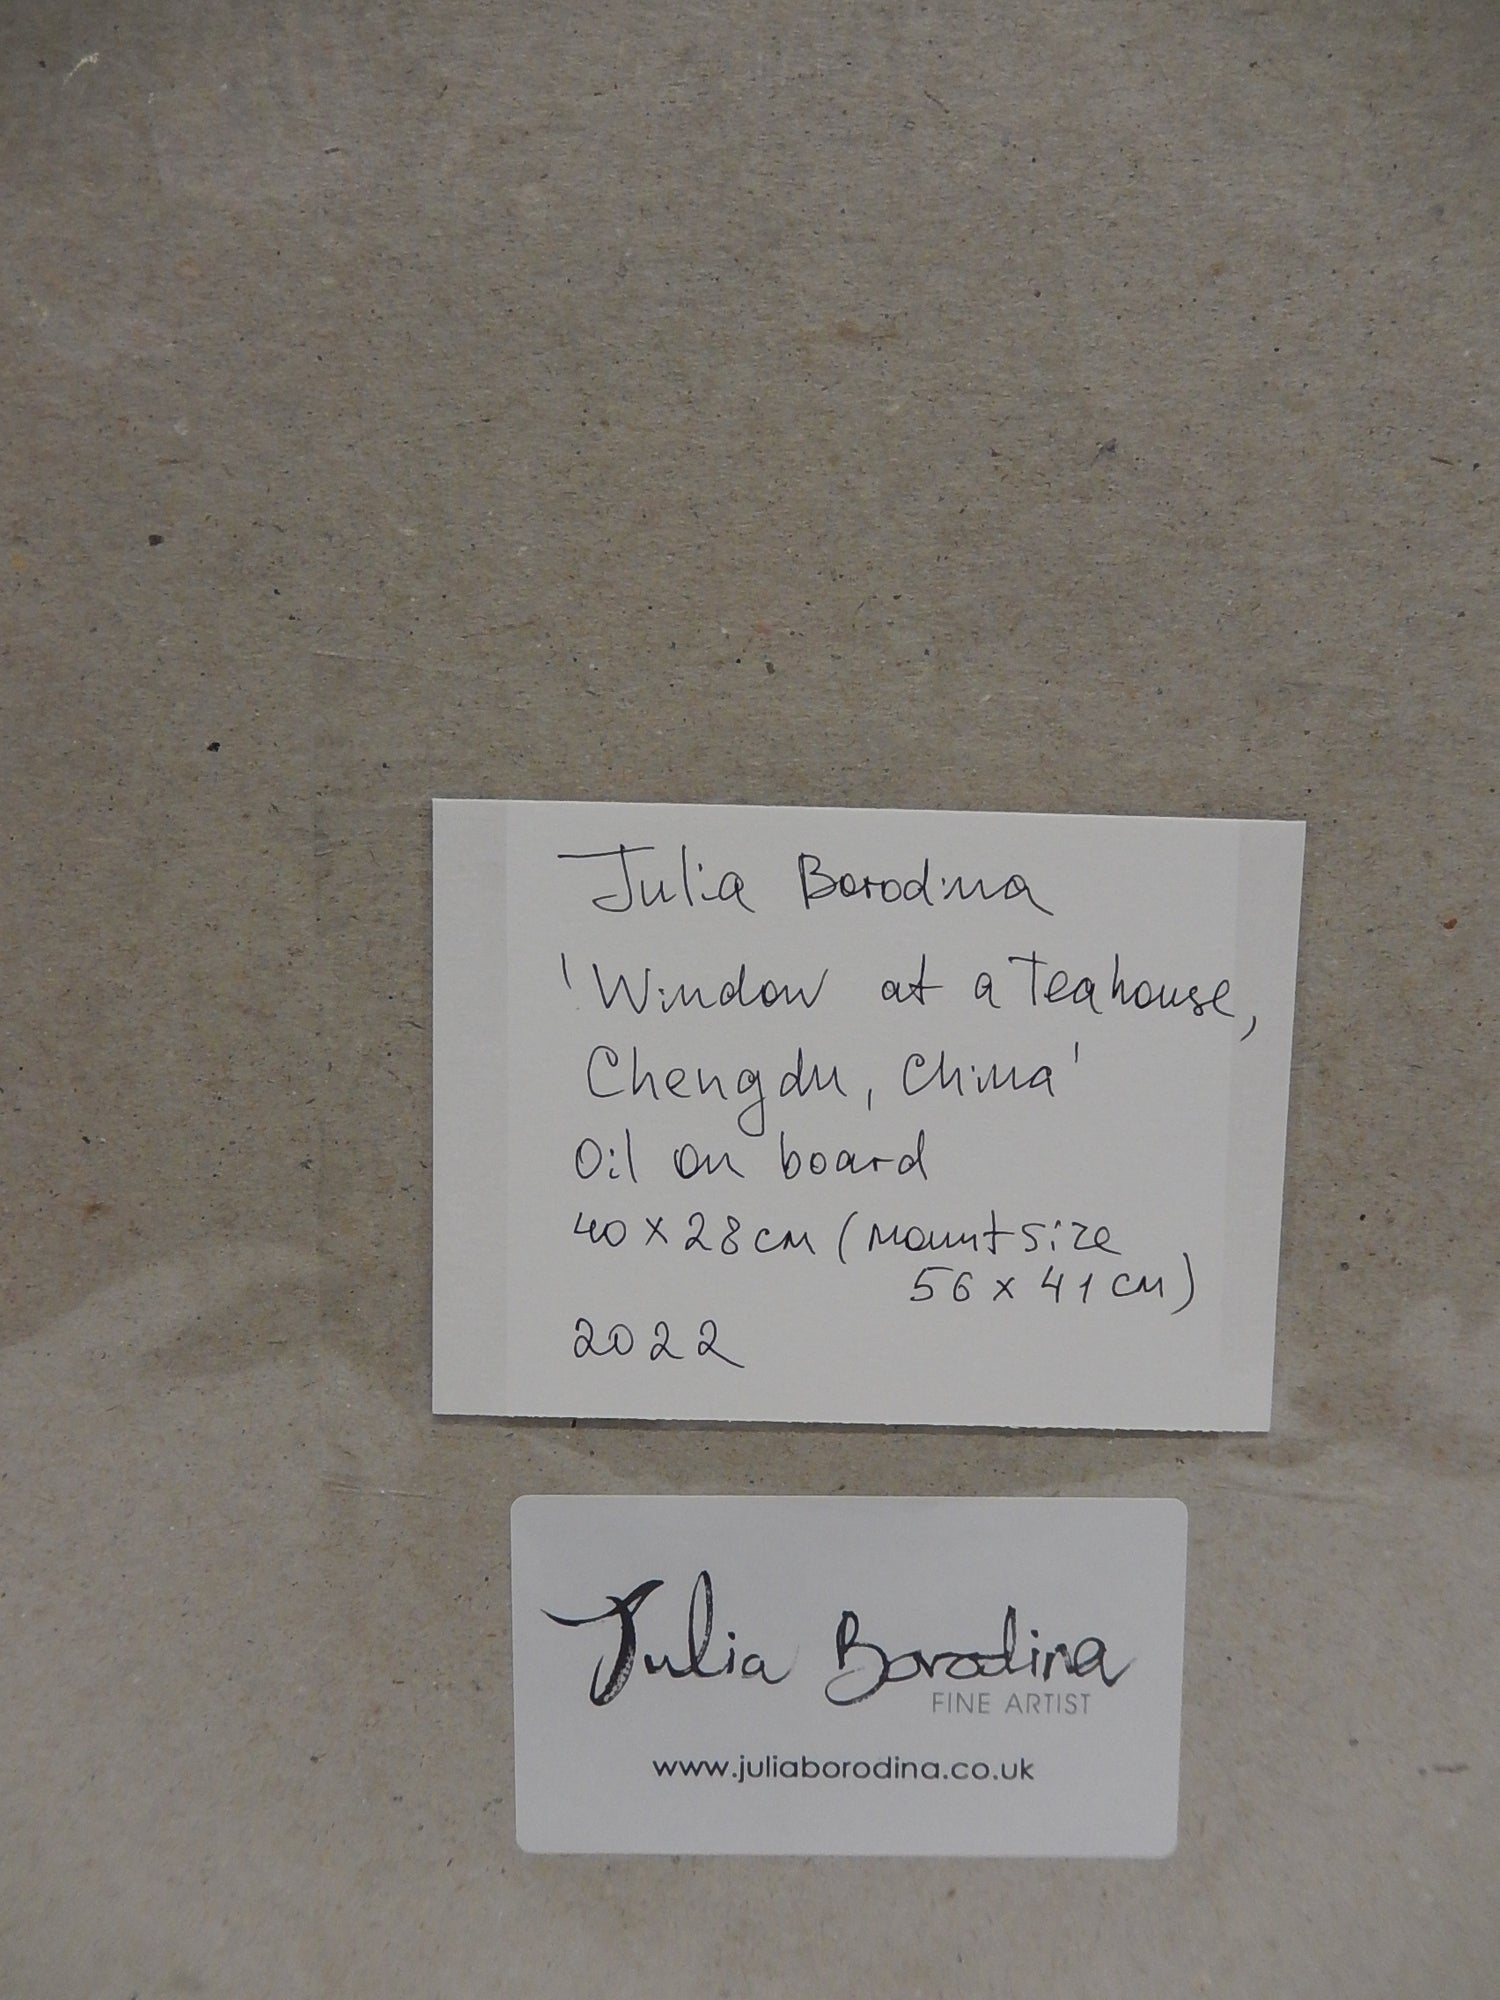 Julia Borodina
'Window at a Teahouse,
Chengdu, China'
Oil on board
40 x 28 cm (mount size
56 x 41 cm)
2022
Julia Borodina
FINE ARTIST
www.juliaborodina.co.uk